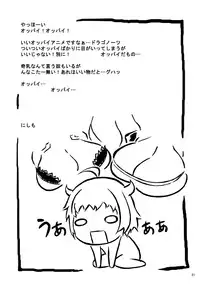 やっほーい
オッパイ！オッパイ！
いいオッパイアニメですなぁ…ドラゴノーツ
ついついオッパイばかりに目がいってしまうが
いいじゃない！別に！　オッパイだもの…
奇乳なんて言う奴もいるが
んなこたー無い！あれはいい物だと…グハッ
オッパイ…
オッパイ…
にしも
うぁ
ぁぁ